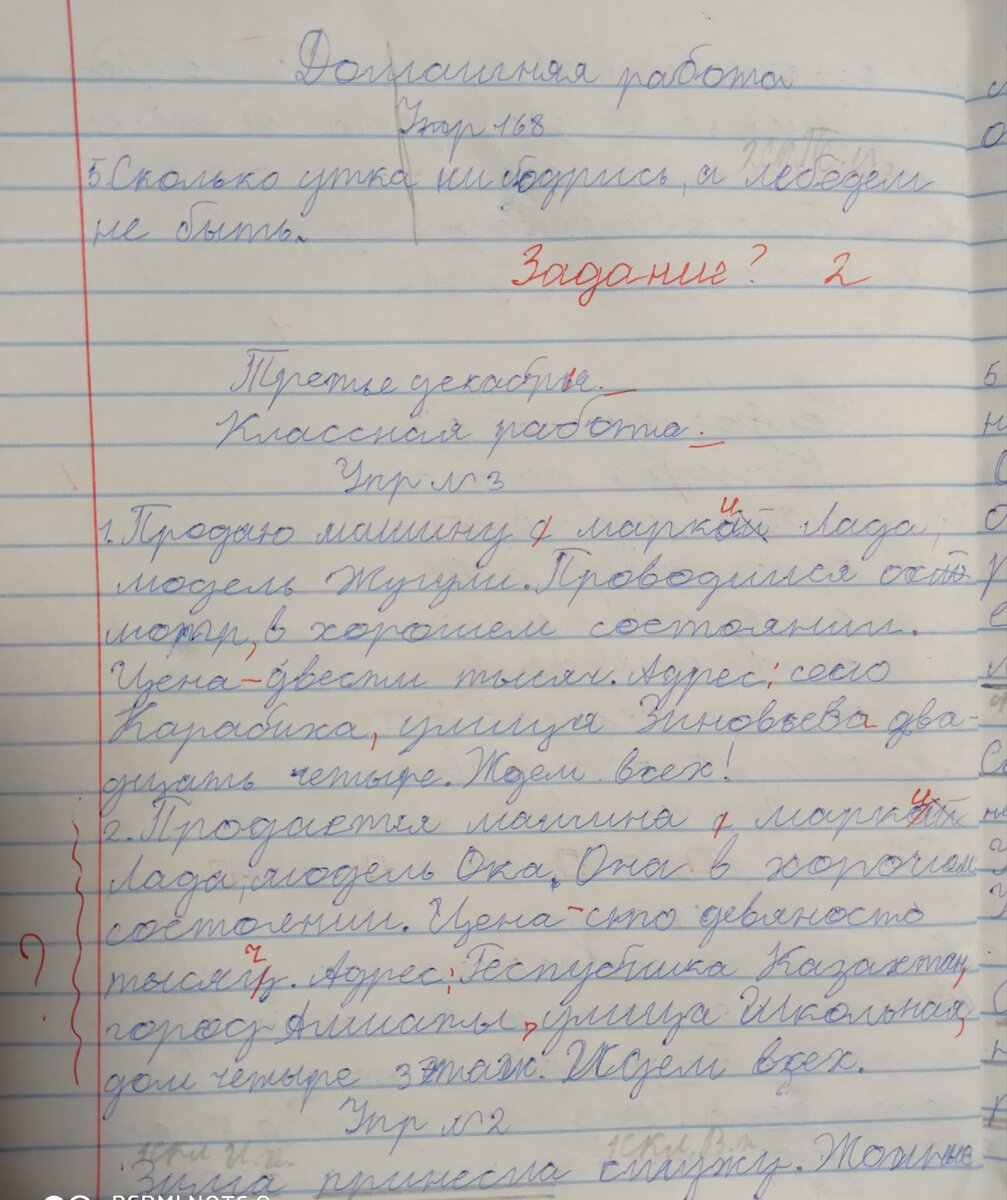 Домашняя работа
Упр 168
2 скл П. п.
5. Сколько утка ни бодрись, а лебедем
не быть.
Задание? 2
Третье декабря.
Классная работа.
Упр №3
1. Продаю машину марки Лада,
модель Жугули. Проводился
в хорошем состоянии.
Цена - двести тысяч. Адрес: село
Карабиха, улица Зиновьева два-
дцать четыре. Ждем всех!
2. Продается машина, марки
Лада, модель Ока. Она в хорочием
состоянии. Цена - сто девяносто
тысяч. Адрес: Республика Казахтан,
город Алматы, улица Школьная,
дом четыре этаж. Ждем всех.
?
Упр №2
1 скл И. п. 1 скл. В. п.
Зима принесла стужу.